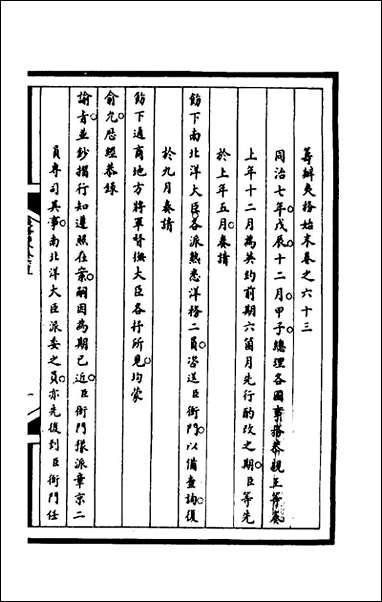 籌辦夷務始末卷之六十三
同治七年戊辰十二月甲子總理各國事務恭親王等奏
上年十二月為英約前期六箇月先行酌改之期臣等先
於上年五月奏請
飭下南北洋大臣各派熟悉洋務二員咨送臣衙門以備查詢復
於九月奏請
飭下通商地方將軍督撫大臣各抒所見均蒙
俞允歷經恭錄
諭旨並鈔摺行知遵照在案嗣因為期已近臣衙門撥派章京二
員專司其事南北洋大臣派委之員亦先後到臣衙門任